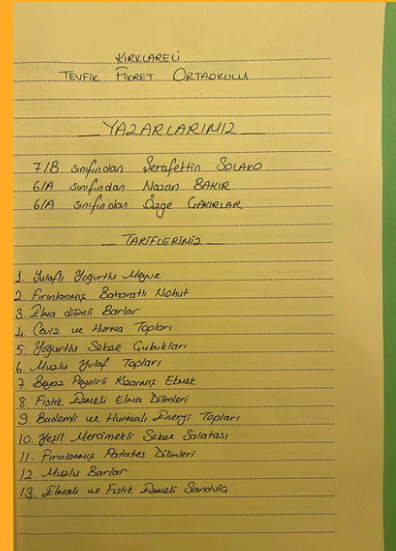 KIRKLARELİ
TEVFİK FİKRET ORTAOKULU
YAZARLARIMIZ
7/B sınıfından Şerafettin SOLAKO
6/A sınıfından Nazan BAKIR
6/A sınıfından Özge ÇAKIRLAR
TARİFLERİMİZ
1. Yulaflı Yoğurtlu Meyve
2. Fırınlanmış Baharatlı Nohut
3. Elma dilimli Barlar
4. Ceviz ve Hurma Topları
5. Yoğurtlu Sebze Çubukları
6. Muzlu Yulaf Topları
7. Beyaz Peynirli Kızarmış Ekmek
8. Fıstık Ezmeli Elma Dilimleri
9. Bademli ve Hurmalı Enerji Topları
10. Yeşil Mercimekli Sebze Salatası
11. Fırınlanmış Patates Dilimleri
12. Muzlu Barlar
13. Elmalı ve Fıstık Ezmeli Sandviç